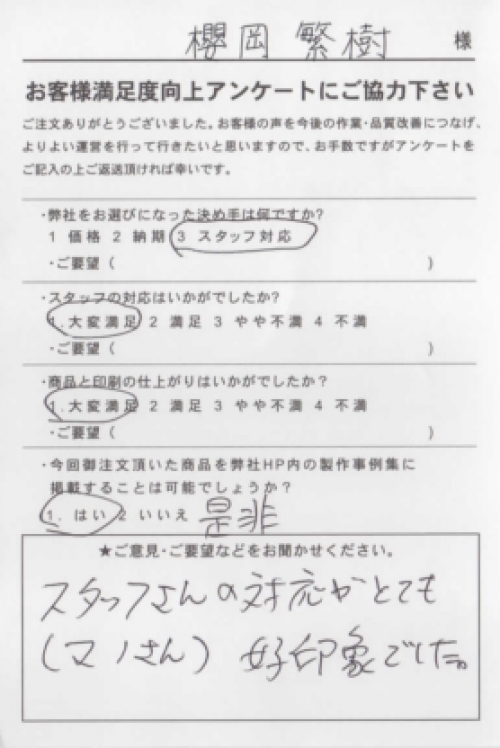 櫻岡 繁樹 様
お客様満足度向上アンケートにご協力下さい
ご注文ありがとうございました。お客様の声を今後の作業・品質改善につなげ、
よりよい運営を行って行きたいと思いますので、お手数ですがアンケートを
ご記入の上ご返送頂ければ幸いです。
・弊社をお選びになった決め手は何ですか?
1 価格 2 納期 3 スタッフ対応
・ご要望 ( )
・スタッフの対応はいかがでしたか?
1.大変満足 2 満足 3 やや不満 4 不満
・ご要望 ( )
・商品と印刷の仕上がりはいかがでしたか?
1.大変満足 2 満足 3 やや不満 4 不満
・ご要望 ( )
・今回御注文頂いた商品を弊社HP内の製作事例集に
掲載することは可能でしょうか?
1. はい 2 いいえ 是非
★ご意見・ご要望などをお聞かせください。
スタッフさんの対応がとても
(マノさん) 好印象でした。